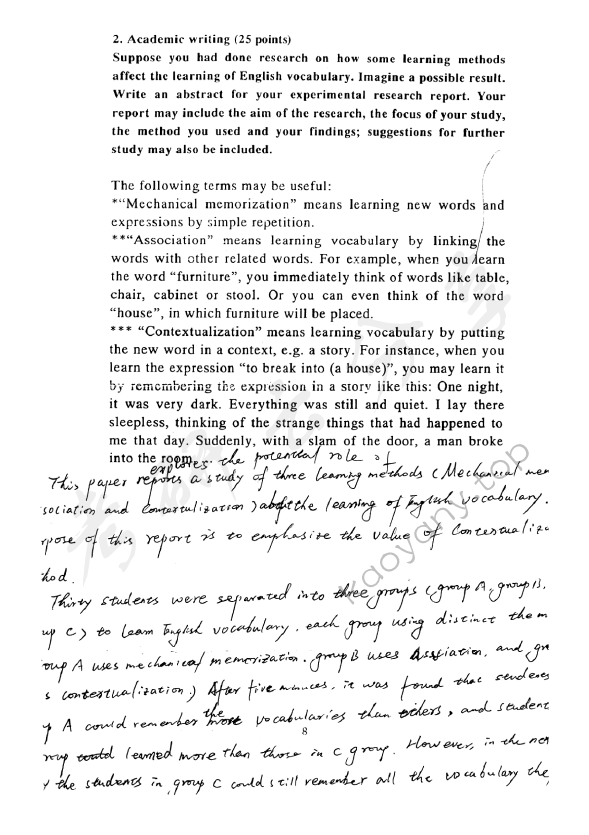 2. Academic writing (25 points)
Suppose you had done research on how some learning methods
affect the learning of English vocabulary. Imagine a possible result.
Write an abstract for your experimental research report. Your
report may include the aim of the research, the focus of your study,
the method you used and your findings; suggestions for further
study may also be included.
The following terms may be useful:
*"Mechanical memorization" means learning new words and
expressions by simple repetition.
**"Association" means learning vocabulary by linking the
words with other related words. For example, when you learn
the word "furniture", you immediately think of words like table,
chair, cabinet or stool. Or you can even think of the word
"house", in which furniture will be placed.
*** "Contextualization" means learning vocabulary by putting
the new word in a context, e.g. a story. For instance, when you
learn the expression "to break into (a house)", you may learn it
by remembering the expression in a story like this: One night,
it was very dark. Everything was still and quiet. I lay there
sleepless, thinking of the strange things that had happened to
me that day. Suddenly, with a slam of the door, a man broke
into the room.
explores the potential role of
This paper reports a study of three learning methods (Mechanical mem
sociation and Contextulization) the learning of English vocabulary.
rpose of this report is to emphasize the value of Contextualiza
hod.
Thirty students were separated into three groups (group A, group B,
up C) to learn English vocabulary, each group using distinct them
oup A uses mechanical memorization, group B uses Association, and gro
s contextualization.) After five minutes, it was found that students
p A could remember the more vocabularies than others, and student
roup could learned more than those in C group. However, in the nex
y the students in group C could still remember all the vocabulary the
8
kaoyany.top